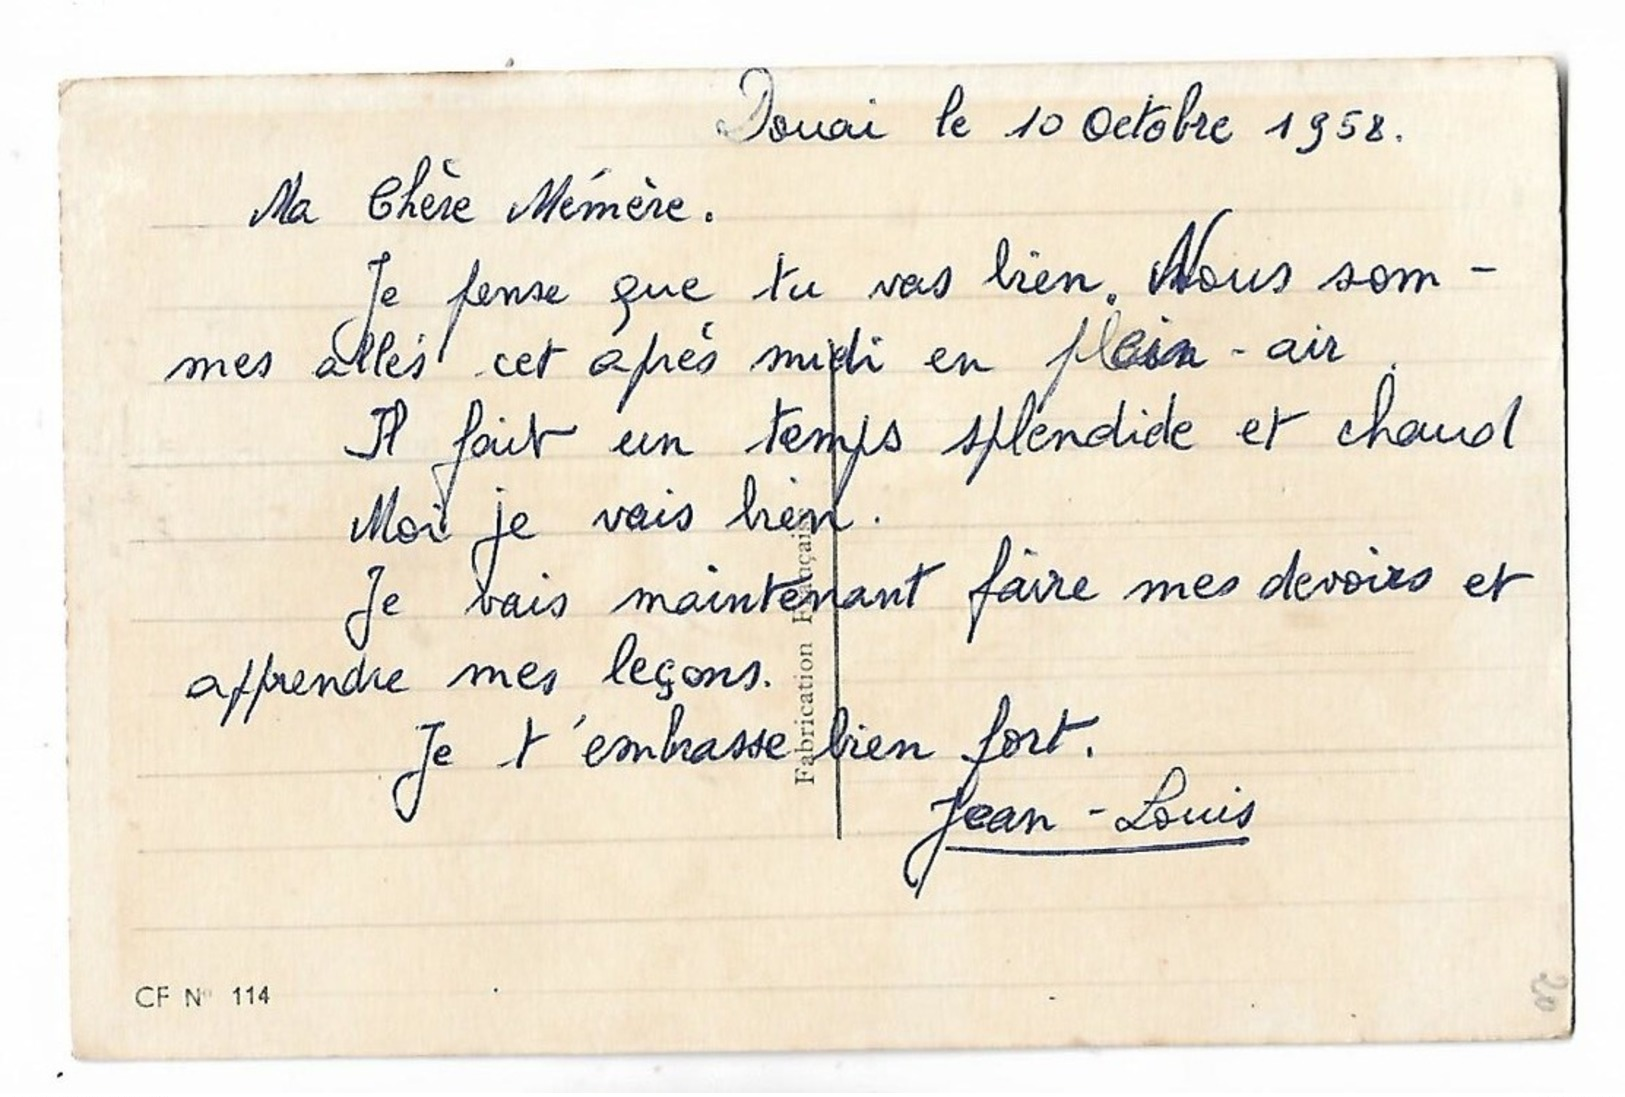 Douai le 10 Octobre 1958.
Ma Chère Mémère.
Je pense que tu vas bien. Nous som-
mes allés cet après midi en plein-air.
Il fait un temps splendide et chaud
Moi je vais bien.
Je vais maintenant faire mes devoirs et
apprendre mes leçons.
Je t'embrasse bien fort.
Jean-Louis
Fabrication Française
CF N° 114
20